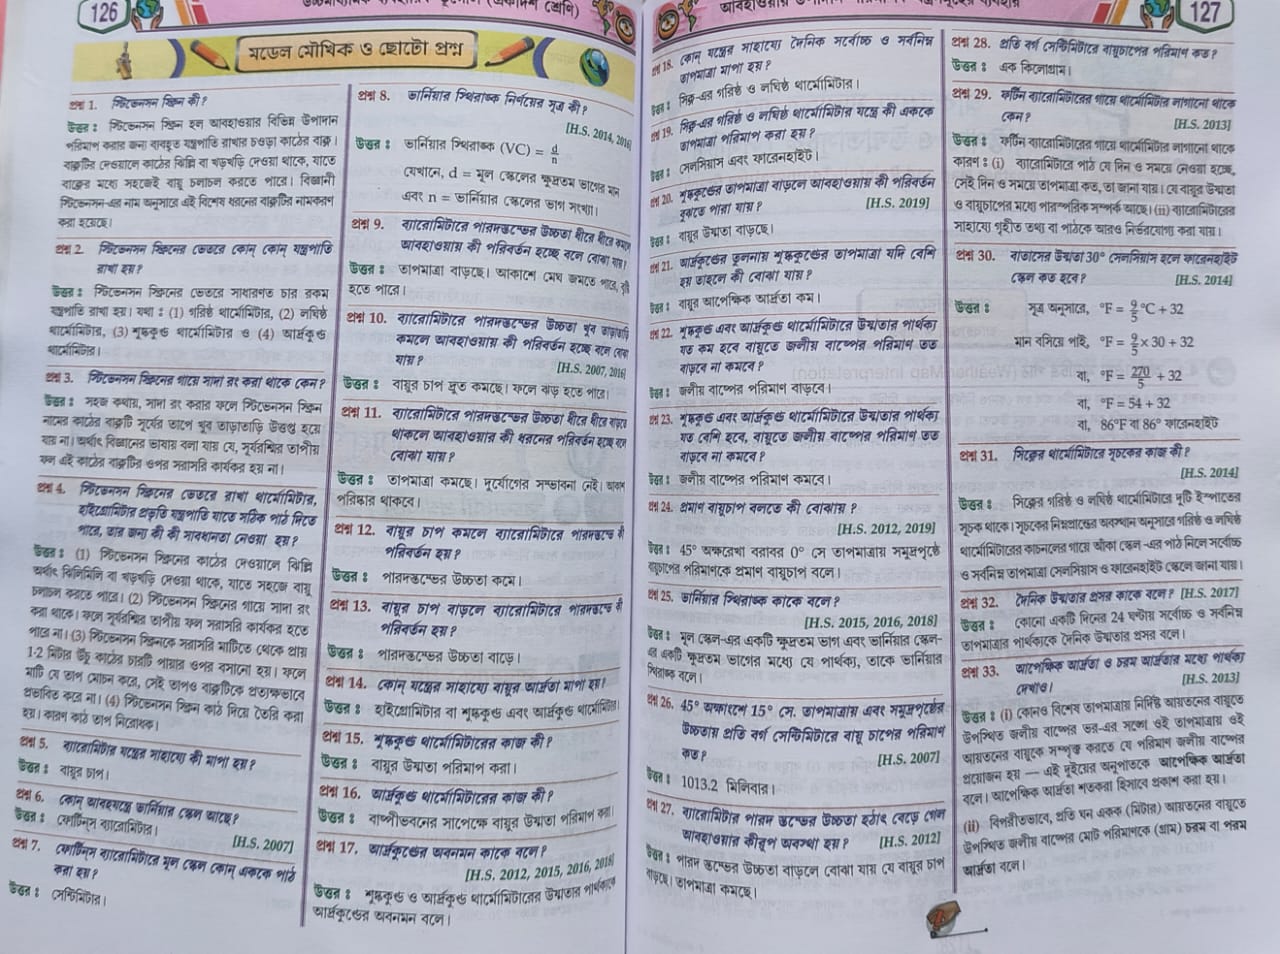 126
উচ্চমাধ্যমিক ব্যবহারিক ভূগোল (একাদশ শ্রেণি)
মডেল মৌখিক ও ছোটো প্রশ্ন
প্রশ্ন 1. স্টিভেনসন স্ক্রিন কী?
উত্তর : স্টিভেনসন স্ক্রিন হল আবহাওয়ার বিভিন্ন উপাদান
পরিমাপ করার জন্য ব্যবহৃত যন্ত্রপাতি রাখার চওড়া কাঠের বাক্স।
বাক্সটির দেওয়ালে কাঠের ঝিল্লি বা খড়খড়ি দেওয়া থাকে, যাতে
বাক্সের মধ্যে সহজেই বায়ু চলাচল করতে পারে। বিজ্ঞানী
স্টিভেনসন-এর নাম অনুসারে এই বিশেষ ধরনের বাক্সটির নামকরণ
করা হয়েছে।
প্রশ্ন 2. স্টিভেনসন স্ক্রিনের ভেতরে কোন্ কোন্ যন্ত্রপাতি
রাখা হয়?
উত্তর : স্টিভেনসন স্ক্রিনের ভেতরে সাধারণত চার রকম
যন্ত্রপাতি রাখা হয়। যথা : (1) গরিষ্ঠ থার্মোমিটার, (2) লঘিষ্ঠ
থার্মোমিটার, (3) শুষ্ককুণ্ড থার্মোমিটার ও (4) আর্দ্রকুণ্ড
থার্মোমিটার।
প্রশ্ন 3. স্টিভেনসন স্ক্রিনের গায়ে সাদা রং করা থাকে কেন?
উত্তর : সহজ কথায়, সাদা রং করার ফলে স্টিভেনসন স্ক্রিন
নামের কাঠের বাক্সটি সূর্যের তাপে খুব তাড়াতাড়ি উত্তপ্ত হয়ে
যায় না। অর্থাৎ বিজ্ঞানের ভাষায় বলা যায় যে, সূর্যরশ্মির তাপীয়
ফল এই কাঠের বাক্সটির ওপর সরাসরি কার্যকর হয় না।
প্রশ্ন 4. স্টিভেনসন স্ক্রিনের ভেতরে রাখা থার্মোমিটার,
হাইগ্রোমিটার প্রভৃতি যন্ত্রপাতি যাতে সঠিক পাঠ দিতে
পারে, তার জন্য কী কী সাবধানতা নেওয়া হয়?
উত্তর : (1) স্টিভেনসন স্ক্রিনের কাঠের দেওয়ালে ঝিল্লি
অর্থাৎ ঝিলিমিলি বা খড়খড়ি দেওয়া থাকে, যাতে সহজে বায়ু
চলাচল করতে পারে। (2) স্টিভেনসন স্ক্রিনের গায়ে সাদা রং
করা থাকে। ফলে সূর্যরশ্মির তাপীয় ফল সরাসরি কার্যকর হতে
পারে না। (3) স্টিভেনসন স্ক্রিনকে সরাসরি মাটিতে থেকে প্রায়
1-2 মিটার উঁচু কাঠের চারটি পায়ার ওপর বসানো হয়। ফলে
মাটি যে তাপ মোচন করে, সেই তাপও বাক্সটিকে প্রত্যক্ষভাবে
প্রভাবিত করে না। (4) স্টিভেনসন স্ক্রিন কাঠ দিয়ে তৈরি করা
হয়। কারণ কাঠ তাপ নিরোধক।
প্রশ্ন 5. ব্যারোমিটার যন্ত্রের সাহায্যে কী মাপা হয়?
উত্তর : বায়ুর চাপ।
প্রশ্ন 6. কোন্ আবহযন্ত্রে ভার্নিয়ার স্কেল আছে?
[H.S. 2007]
উত্তর : ফোর্টিনস্ ব্যারোমিটার।
প্রশ্ন 7. ফোর্টিনস্ ব্যারোমিটারে মূল স্কেল কোন্ এককে পাঠ
করা হয়?
উত্তর : সেন্টিমিটার।
প্রশ্ন 8. ভার্নিয়ার স্থিরাঙ্ক নির্ণয়ের সূত্র কী?
[H.S. 2014, 2016]
উত্তর : ভার্নিয়ার স্থিরাঙ্ক (VC) = d/n
যেখানে, d = মূল স্কেলের ক্ষুদ্রতম ভাগের মান
এবং n = ভার্নিয়ার স্কেলের ভাগ সংখ্যা।
প্রশ্ন 9. ব্যারোমিটারে পারদস্তম্ভের উচ্চতা ধীরে ধীরে কমলে
আবহাওয়ায় কী পরিবর্তন হচ্ছে বলে বোঝা যায়?
উত্তর : তাপমাত্রা বাড়ছে। আকাশে মেঘ জমতে পারে, বৃষ্টি
হতে পারে।
প্রশ্ন 10. ব্যারোমিটারে পারদস্তম্ভের উচ্চতা খুব তাড়াতাড়ি
কমলে আবহাওয়ায় কী পরিবর্তন হচ্ছে বলে বোঝা
যায়? [H.S. 2007, 2016]
উত্তর : বায়ুর চাপ দ্রুত কমছে। ফলে ঝড় হতে পারে।
প্রশ্ন 11. ব্যারোমিটারে পারদস্তম্ভের উচ্চতা ধীরে ধীরে বাড়তে
থাকলে আবহাওয়ার কী ধরনের পরিবর্তন হচ্ছে বলে
বোঝা যায়?
উত্তর : তাপমাত্রা কমছে। দুর্যোগের সম্ভাবনা নেই। আকাশ
পরিষ্কার থাকবে।
প্রশ্ন 12. বায়ুর চাপ কমলে ব্যারোমিটারে পারদস্তম্ভের কী
পরিবর্তন হয়?
উত্তর : পারদস্তম্ভের উচ্চতা কমে।
প্রশ্ন 13. বায়ুর চাপ বাড়লে ব্যারোমিটারে পারদস্তম্ভে কী
পরিবর্তন হয়?
উত্তর : পারদস্তম্ভের উচ্চতা বাড়ে।
প্রশ্ন 14. কোন্ যন্ত্রের সাহায্যে বায়ুর আর্দ্রতা মাপা হয়।
উত্তর : হাইগ্রোমিটার বা শুষ্ককুণ্ড এবং আর্দ্রকুণ্ড থার্মোমিটার।
প্রশ্ন 15. শুষ্ককুণ্ড থার্মোমিটারের কাজ কী?
উত্তর : বায়ুর উষ্ণতা পরিমাপ করা।
প্রশ্ন 16. আর্দ্রকুণ্ড থার্মোমিটারের কাজ কী?
উত্তর : বাষ্পীভবনের সাপেক্ষে বায়ুর উষ্ণতা পরিমাপ করা।
প্রশ্ন 17. আর্দ্রকুণ্ডের অবনমন কাকে বলে?
[H.S. 2012, 2015, 2016, 2018]
উত্তর : শুষ্ককুণ্ড ও আর্দ্রকুণ্ড থার্মোমিটারের উষ্ণতার পার্থক্যকে
আর্দ্রকুণ্ডের অবনমন বলে।
127
প্রশ্ন 18. কোন্ যন্ত্রের সাহায্যে দৈনিক সর্বোচ্চ ও সর্বনিম্ন
তাপমাত্রা মাপা হয়?
উত্তর : সিক্স-এর গরিষ্ঠ ও লঘিষ্ঠ থার্মোমিটার।
প্রশ্ন 19. সিক্স-এর গরিষ্ঠ ও লঘিষ্ঠ থার্মোমিটার যন্ত্রে কী এককে
তাপমাত্রা পরিমাপ করা হয়?
উত্তর : সেলসিয়াস এবং ফারেনহাইট।
প্রশ্ন 20. শুষ্ককুণ্ডের তাপমাত্রা বাড়লে আবহাওয়ায় কী পরিবর্তন
বুঝতে পারা যায়? [H.S. 2019]
উত্তর : বায়ুর উষ্মতা বাড়ছে।
প্রশ্ন 21. আর্দ্রকুণ্ডের তুলনায় শুষ্ককুণ্ডের তাপমাত্রা যদি বেশি
হয় তাহলে কী বোঝা যায়?
উত্তর : বায়ুর আপেক্ষিক আর্দ্রতা কম।
প্রশ্ন 22. শুষ্ককুণ্ড এবং আর্দ্রকুণ্ড থার্মোমিটারে উষ্মতার পার্থক্য
যত কম হবে বায়ুতে জলীয় বাষ্পের পরিমাণ তত
বাড়বে না কমবে?
উত্তর : জলীয় বাষ্পের পরিমাণ বাড়বে।
প্রশ্ন 23. শুষ্ককুণ্ড এবং আর্দ্রকুণ্ড থার্মোমিটারে উষ্মতার পার্থক্য
যত বেশি হবে, বায়ুতে জলীয় বাষ্পের পরিমাণ তত
বাড়বে না কমবে?
উত্তর : জলীয় বাষ্পের পরিমাণ কমবে।
প্রশ্ন 24. প্রমাণ বায়ুচাপ বলতে কী বোঝায় ?
[H.S. 2012, 2019]
উত্তর : 45° অক্ষরেখা বরাবর 0° সে তাপমাত্রায় সমুদ্রপৃষ্ঠে
বায়ুচাপের পরিমাণকে প্রমাণ বায়ুচাপ বলে।
প্রশ্ন 25. ভার্নিয়ার স্থিরাঙ্ক কাকে বলে?
[H.S. 2015, 2016, 2018]
উত্তর : মূল স্কেল-এর একটি ক্ষুদ্রতম ভাগ এবং ভার্নিয়ার স্কেল-
এর একটি ক্ষুদ্রতম ভাগের মধ্যে যে পার্থক্য, তাকে ভার্নিয়ার
স্থিরাঙ্ক বলে।
প্রশ্ন 26. 45° অক্ষাংশে 15° সে. তাপমাত্রায় এবং সমুদ্রপৃষ্ঠের
উচ্চতায় প্রতি বর্গ সেন্টিমিটারে বায়ু চাপের পরিমাণ
কত? [H.S. 2007]
উত্তর : 1013.2 মিলিবার।
প্রশ্ন 27. ব্যারোমিটার পারদ স্তম্ভের উচ্চতা হঠাৎ বেড়ে গেল
আবহাওয়ার কীরূপ অবস্থা হয়? [H.S. 2012]
উত্তর : পারদ স্তম্ভের উচ্চতা বাড়লে বোঝা যায় যে বায়ুর চাপ
বাড়ছে। তাপমাত্রা কমছে।
প্রশ্ন 28. প্রতি বর্গ সেন্টিমিটারে বায়ুচাপের পরিমাণ কত?
উত্তর : এক কিলোগ্রাম।
প্রশ্ন 29. ফর্টিন ব্যারোমিটারের গায়ে থার্মোমিটার লাগানো থাকে
কেন? [H.S. 2013]
উত্তর : ফর্টিন ব্যারোমিটারের গায়ে থার্মোমিটার লাগানো থাকে
কারণ : (i) ব্যারোমিটারে পাঠ যে দিন ও সময়ে নেওয়া হচ্ছে,
সেই দিন ও সময়ে তাপমাত্রা কত, তা জানা যায়। যে বায়ুর উষ্মতা
ও বায়ুচাপের মধ্যে পারস্পরিক সম্পর্ক আছে। (ii) ব্যারোমিটারের
সাহায্যে গৃহীত তথ্য বা পাঠকে আরও নির্ভরযোগ্য করা যায়।
প্রশ্ন 30. বাতাসের উষ্মতা 30° সেলসিয়াস হলে ফারেনহাইট
স্কেল কত হবে? [H.S. 2014]
উত্তর : সূত্র অনুসারে, °F = 9/5 °C + 32
মান বসিয়ে পাই, °F = 9/5 × 30 + 32
বা, °F = 270/5 + 32
বা, °F = 54 + 32
বা, 86°F বা 86° ফারেনহাইট
প্রশ্ন 31. সিক্সের থার্মোমিটারে সূচকের কাজ কী?
[H.S. 2014]
উত্তর : সিক্সের গরিষ্ঠ ও লঘিষ্ঠ থার্মোমিটারে দুটি ইস্পাতের
সূচক থাকে। সূচকের নিম্নপ্রান্তের অবস্থান অনুসারে গরিষ্ঠ ও লঘিষ্ঠ
থার্মোমিটারের কাচনলের গায়ে আঁকা স্কেল -এর পাঠ নিলে সর্বোচ্চ
ও সর্বনিম্ন তাপমাত্রা সেলসিয়াস ও ফারেনহাইট স্কেলে জানা যায়।
প্রশ্ন 32. দৈনিক উষ্মতার প্রসর কাকে বলে? [H.S. 2017]
উত্তর : কোনো একটি দিনের 24 ঘণ্টায় সর্বোচ্চ ও সর্বনিম্ন
তাপমাত্রার পার্থক্যকে দৈনিক উষ্মতার প্রসর বলে।
প্রশ্ন 33. আপেক্ষিক আর্দ্রতা ও চরম আর্দ্রতার মধ্যে পার্থক্য
দেখাও। [H.S. 2013]
উত্তর : (i) কোনও বিশেষ তাপমাত্রায় নির্দিষ্ট আয়তনের বায়ুতে
উপস্থিত জলীয় বাষ্পের ভর-এর সঙ্গে ওই তাপমাত্রায় ওই
আয়তনের বায়ুকে সম্পৃক্ত করতে যে পরিমাণ জলীয় বাষ্পের
প্রয়োজন হয় — এই দুইয়ের অনুপাতকে আপেক্ষিক আর্দ্রতা
বলে। আপেক্ষিক আর্দ্রতা শতকরা হিসাবে প্রকাশ করা হয়।
(ii) বিপরীতভাবে, প্রতি ঘন একক (মিটার) আয়তনের বায়ুতে
উপস্থিত জলীয় বাষ্পের মোট পরিমাণকে (গ্রাম) চরম বা পরম
আর্দ্রতা বলে।